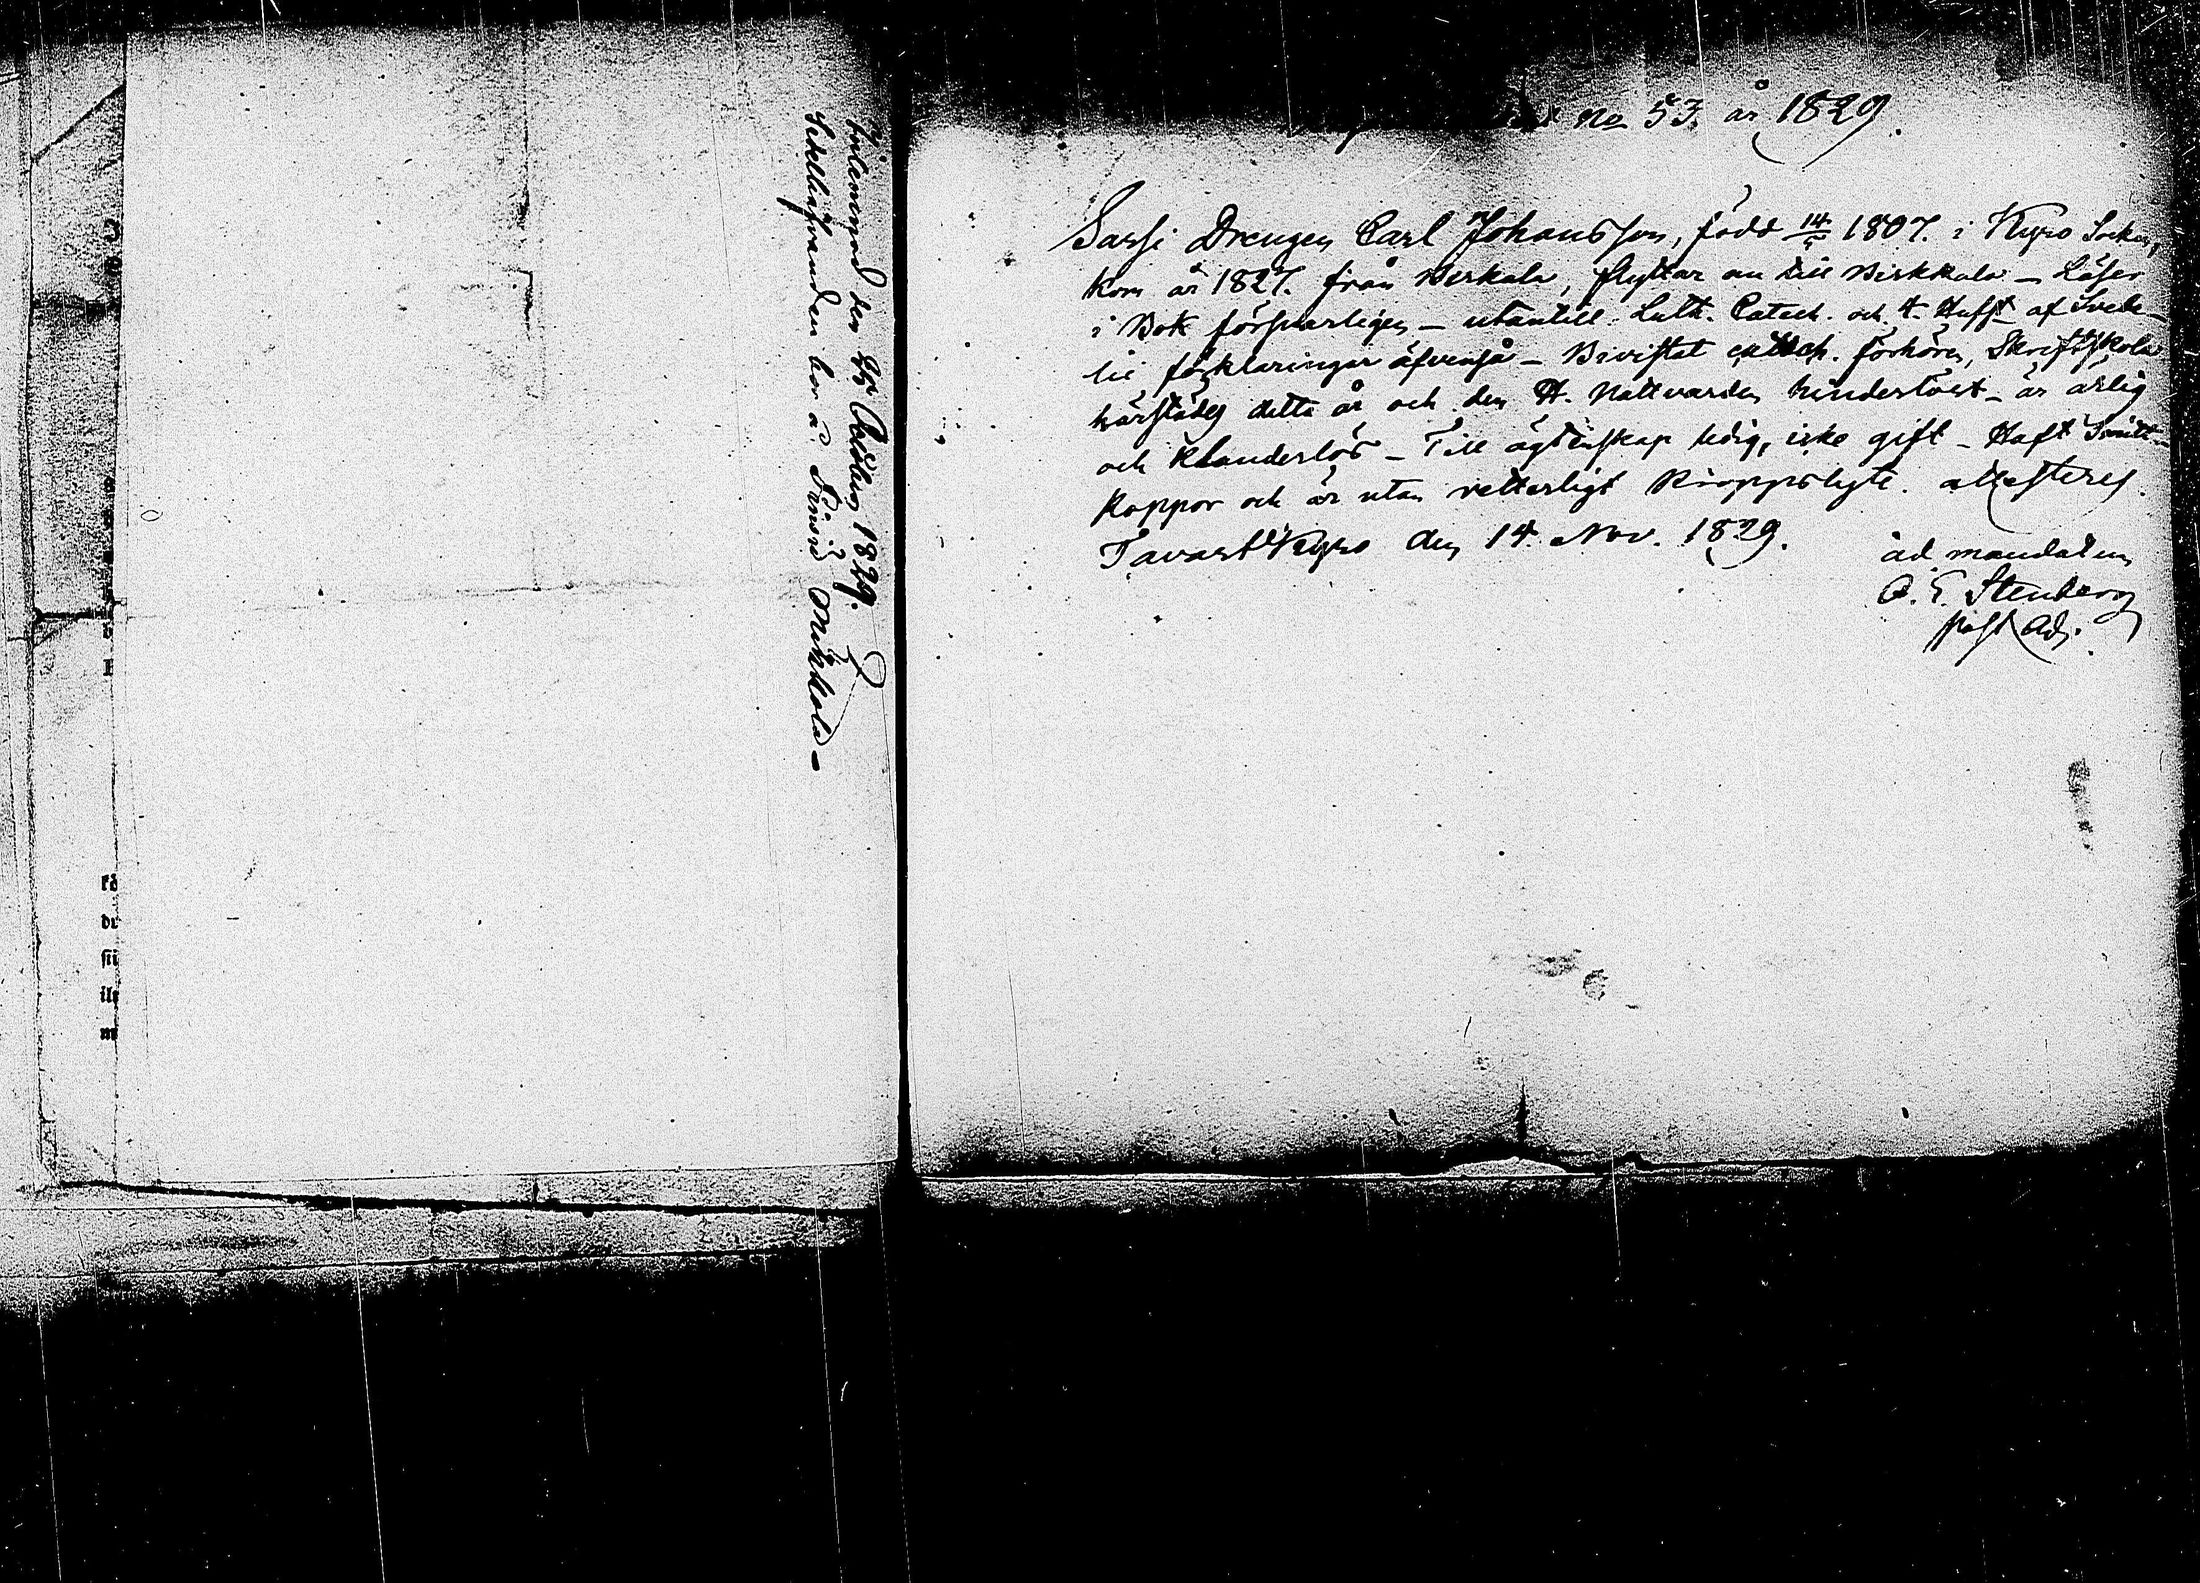 No 53. år 1829.
Sassi Drengen Carl Johansson, född 14/ 1807. i Kyro Socken,
kom år 1827. från Birkala, flyttar nu till Birkkala – Läser
i Bok försvarligen – utantill Luth. Catech. och H. Hufst. af Svebi-
lii förklaringar äfvenså – Bivistat catech. förhören, Skriftskola
härstädes detta år och den H. Nattvarden hinderlöst – är ärlig
och klanderlös – Till ägtenskap ledig, icke gift – Haft Smitt-
koppor och är utan vetterligt kroppslyte. attesteres.
TavastKyro den 14. Nov. 1829.
ad mandatum
A. E. Stenberg
past. Adj.
Inlemnad den 1829.
Sedelhafvanden bor å